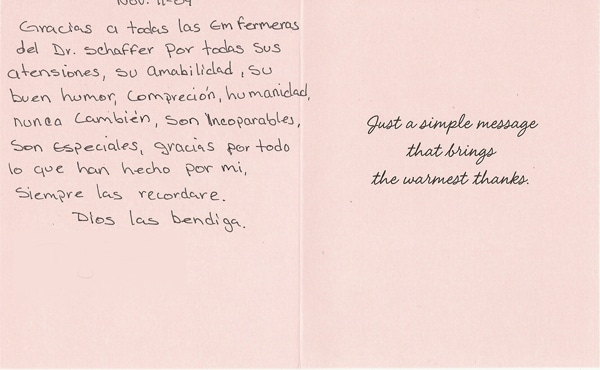 Nov. 11-09
Gracias a todas las Emfermeras
del Dr. Schaffer Por todas sus
atensiones, su amabilidad, su
buen humor, Compreción, humanidad,
nunca Cambién, son Incoparables,
Son Especiales, gracias por todo
lo que han hecho por mi,
Siempre las recordare.
Dios las bendiga.
Just a simple message
that brings
the warmest thanks.